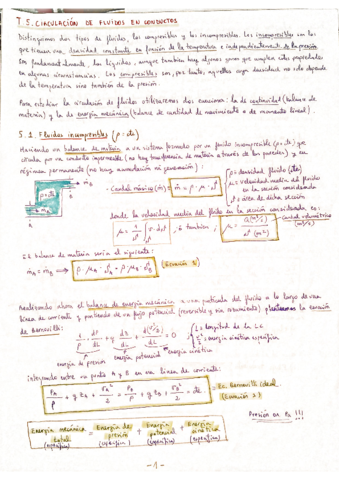 T 5. CIRCULACIÓN DE FLUIDOS EN CONDUCTOS
Distinguimos dos tipos de fluidos, los compresibles y los incompresibles. Los incompresibles son los
que tienen una densidad constante en función de la temperatura e independientemente de la presión
Son fundamentalmente, los líquidos, aunque también hay algunos gases que cumplen estas propiedades
en algunas circunstancias. Los compresibles son, por tanto, aquellos cuya densidad no solo depende
de la temperatura sino también de la presión.
Para estudiar la circulación de fluidos utilizaremos dos ecuaciones: la de continuidad (balance de
materia) y la de energía mecánica (balance de cantidad de movimiento o de momento lineal).
5.1 Fluidos incompresibles (ρ: cte)
Haciendo un balance de materia a un sistema formado por un fluido incompresible (ρ: cte) que
circula por un conducto impermeable (no hay transferencia de materia a través de las paredes) y en
régimen permanente (no hay acumulación ni generación):
Caudal másico (ṁ) = ṁ = ρ · μ · S
ρ = densidad fluido (cte)
μ = velocidad media del fluido
en la sección considerada
S = área de dicha sección
donde la velocidad media del fluido en la sección considerada es:
o también
Caudal volumétrico
(m³/s)
El balance de materia sería el siguiente:
ṁA = ṁB → ρ · μA · SA = ρ · μB · SB (Ecuación 1)
Realizando ahora el balance de energía mecánica a una partícula del fluido a lo largo de una
línea de corriente y partiendo de un flujo potencial (reversible y sin rozamiento) planteamos la ecuación
de Bernouilli:
= 0
l = longitud de la LC
= energía cinética específica
energía de presión
energía potencial
energía cinética
integrando entre un punto A y B en una línea de corriente:
PA/ρ + g zA + vA²/2 = PB/ρ + g zB + vB²/2 = cte
Ec. Bernouilli ideal
(Ecuación 2)
Presión en Pa !!!
Energía mecánica total (específica) = Energía de presión (específica) + Energía potencial (específica) + Energía cinética (específica)
- 1 -